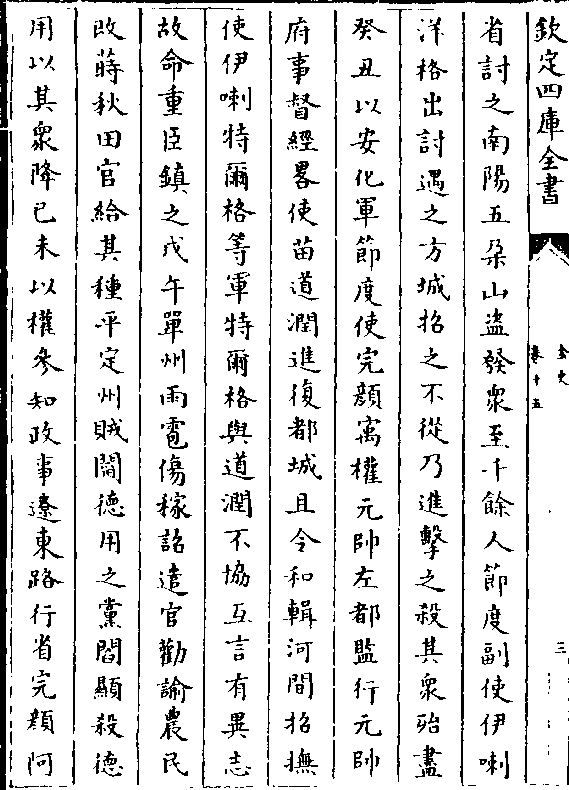 欽定四庫全書
金史
卷十五
三
省討之南陽五朶山盗發衆至千餘人節度副使伊喇
洋格出討遇之方城招之不從乃進擊之殺其衆殆盡
癸丑以安化軍節度使完顔寓權元帥左都監行元帥
府事督經畧使苗道潤進復都城且令和輯河間招撫
使伊喇特爾格等軍特爾格與道潤不協互言有異志
故命重臣鎮之戊午單州雨雹傷稼詔遣官勸諭農民
改蒔秋田官給其種平定州賊閻德用之黨閻顯殺德
用以其衆降已未以權參知政事遼東路行省完顔阿